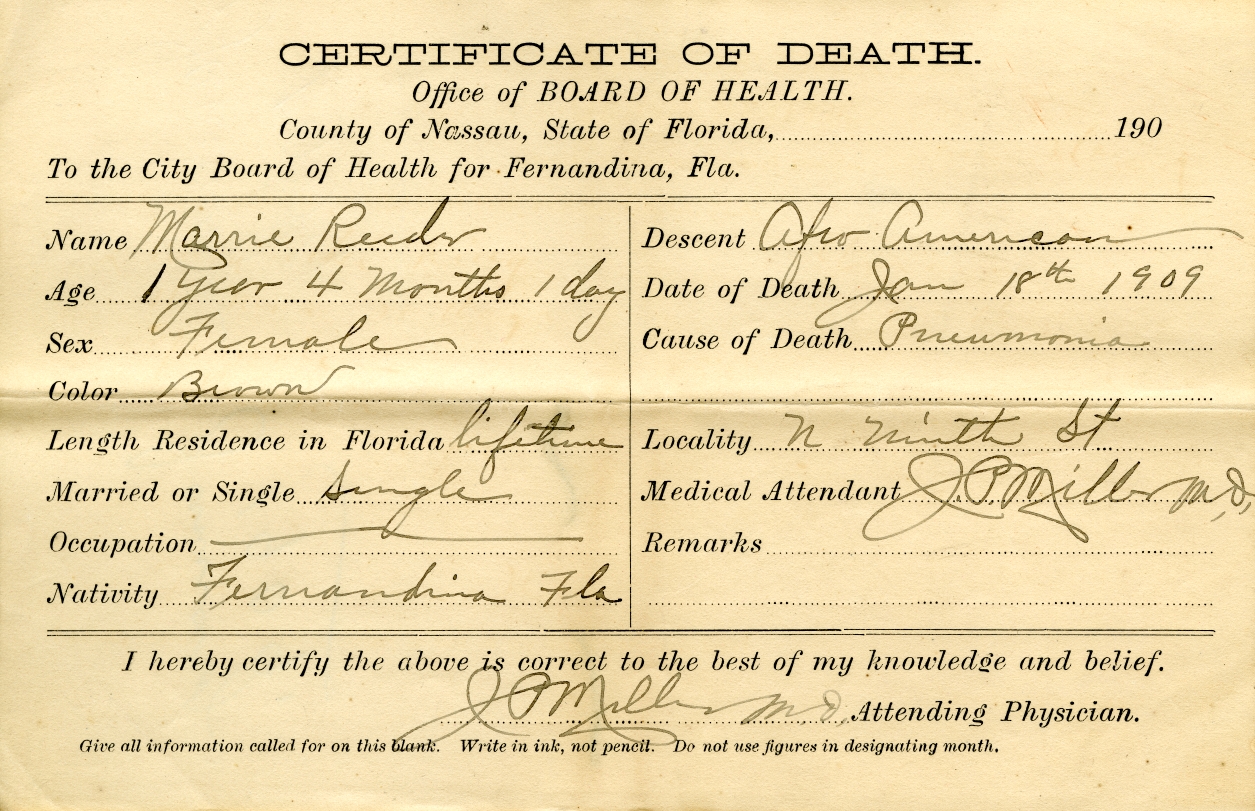 CERTIFICATE OF DEATH.
Office of BOARD OF HEALTH.
County of Nassau, State of Florida, 190
To the City Board of Health for Fernandina, Fla.
Name Marrie Reeder
Age 1 Year 4 Months 1 day
Sex Female
Color Brown
Length Residence in Florida lifetime
Married or Single Single
Occupation
Nativity Fernandina Fla
Descent Afro American
Date of Death Jan 18th 1909
Cause of Death Pneumonia
Locality N Ninth St
Medical Attendant J.P. Miller M.D.
Remarks
I hereby certify the above is correct to the best of my knowledge and belief.
J P Miller M.D. Attending Physician.
Give all information called for on this blank. Write in ink, not pencil. Do not use figures in designating month.